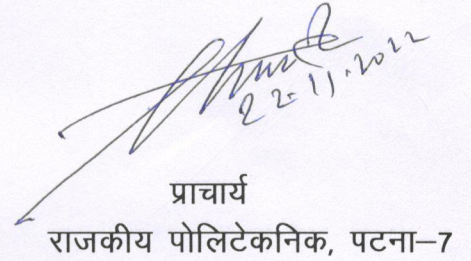 22.11.2022
प्राचार्य
राजकीय पोलिटेकनिक, पटना–7